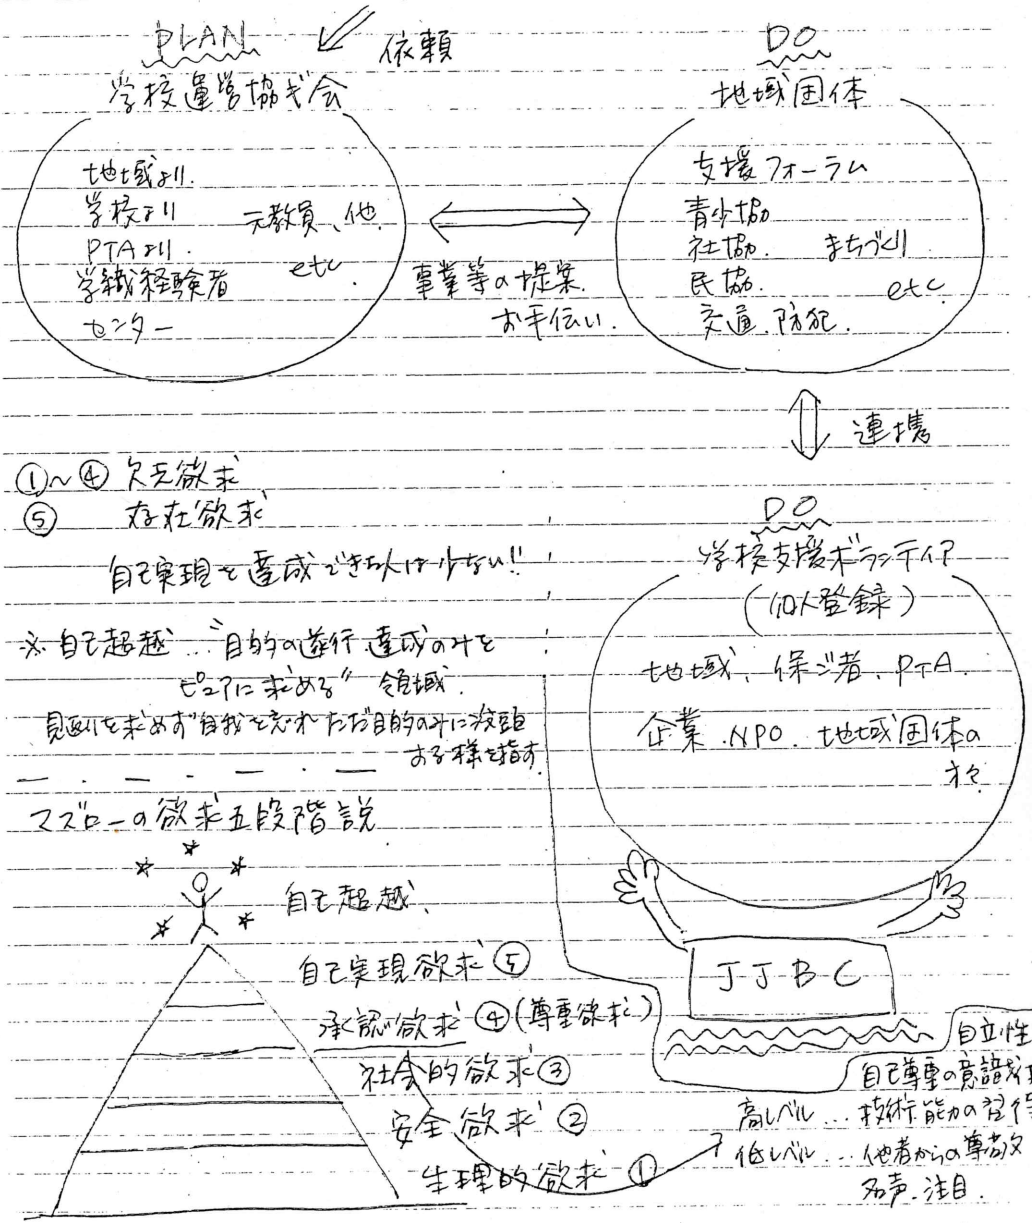 PLAN
依頼
学校運営協ギ会
地域より.
学校より
PTAより.
学識経験者
センター
元教員、他.
etc
事業等の提案.
お手伝い.
DO
地域団体
支援フォーラム
青少協
社協. まちづくり
民協. etc.
交通.防犯.
連携
DO
学校支援ボランティア
(個人登録)
地域、保ゴ者、PTA.
企業.NPO.地域団体の
方々
JJBC
①～④ 欠乏欲求
⑤ 存在欲求
自己実現を達成できた人は少ない!!
※自己超越…"目的の遂行、達成のみを
ピュアに求める" 領域.
見返りを求めず自我を忘れただ目的のみに没頭
する様を指す.
マズローの欲求五段階説
自己超越、
自己実現欲求⑤
承認欲求④(尊重欲求)
社会的欲求③
安全欲求②
生理的欲求①
自立性
自己尊重の意識
高レベル…技術能力の習得
低レベル…他者からの尊敬
名声.注目.